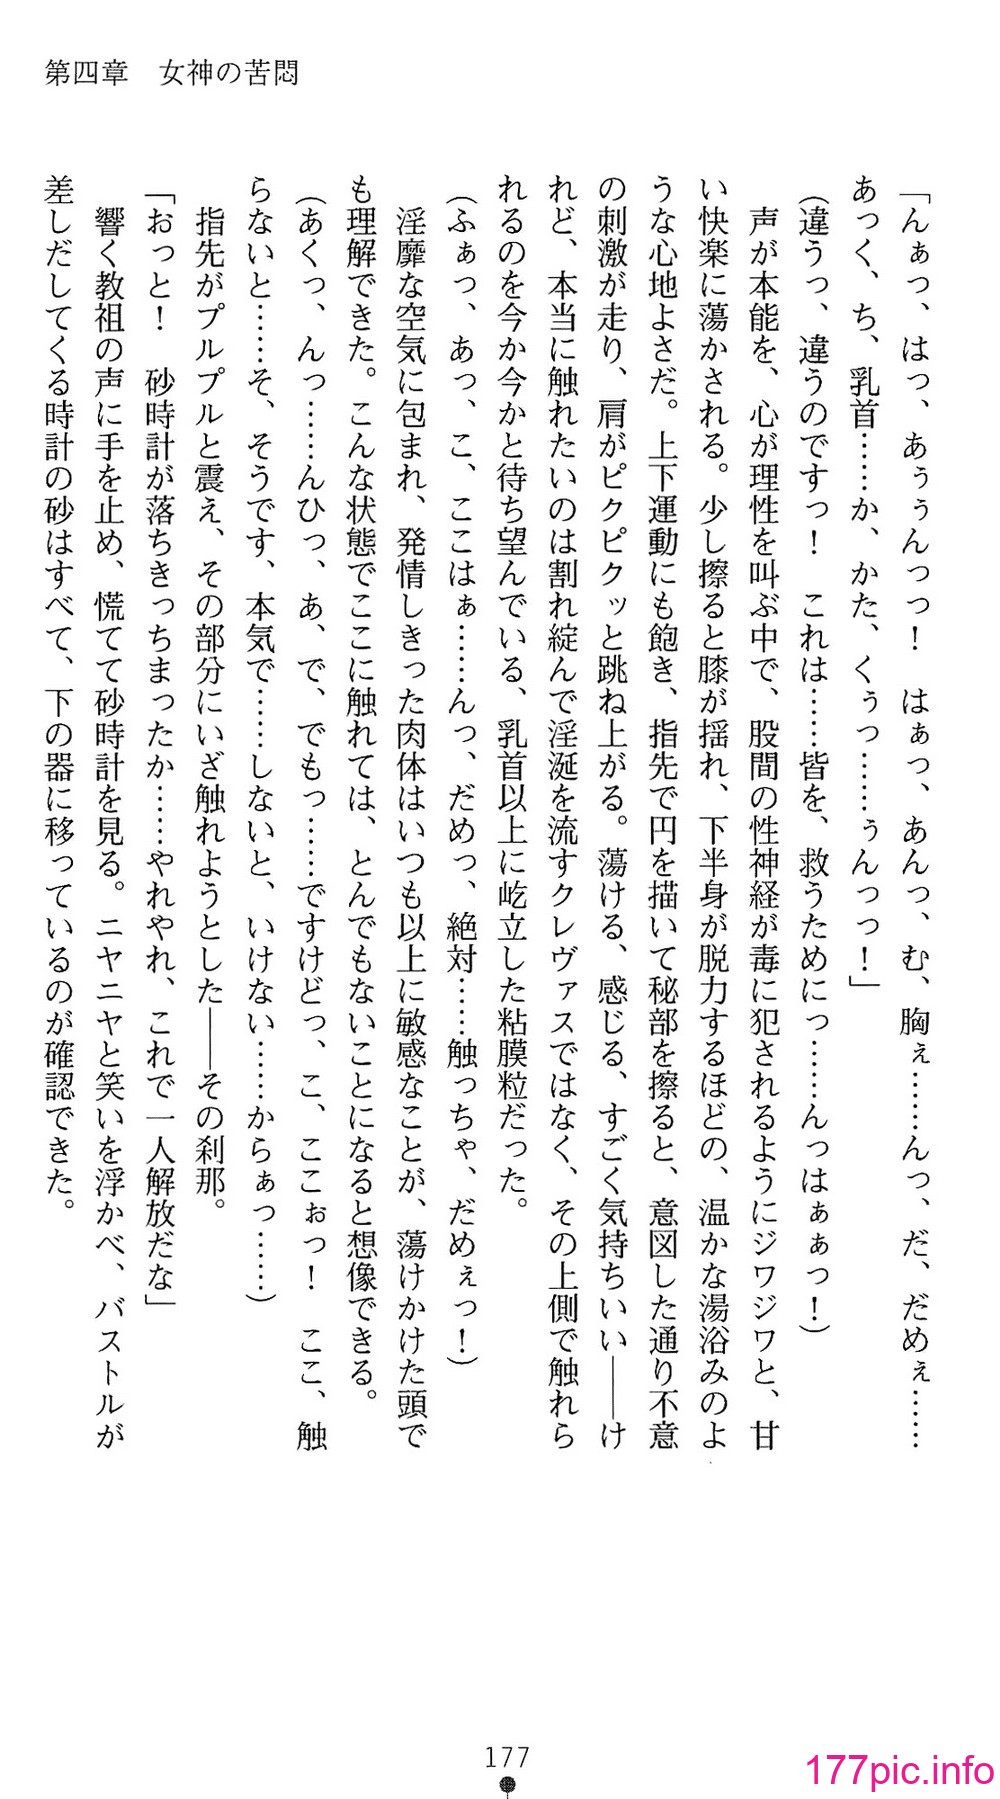 第四章　女神の苦悶
「んぁっ、はっ、あぅぅんっっ！　はぁっ、あんっ、む、胸ぇ……んっ、だ、だめぇ……
あっく、ち、乳首……か、かた、くぅっ……ぅんっっ！」
（違うっ、違うのですっ！　これは……皆を、救うためにっ……んっはぁぁっ！）
　声が本能を、心が理性を叫ぶ中で、股間の性神経が毒に犯されるようにジワジワと、甘
い快楽に蕩かされる。少し擦ると膝が揺れ、下半身が脱力するほどの、温かな湯浴みのよ
うな心地よさだ。上下運動にも飽き、指先で円を描いて秘部を擦ると、意図した通り不意
の刺激が走り、肩がピクピクッと跳ね上がる。蕩ける、感じる、すごく気持ちいい――け
れど、本当に触れたいのは割れ綻んで淫涎を流すクレヴァスではなく、その上側で触れら
れるのを今か今かと待ち望んでいる、乳首以上に屹立した粘膜粒だった。
（ふぁっ、あっ、こ、ここはぁ……んっ、だめっ、絶対……触っちゃ、だめぇっ！）
　淫靡な空気に包まれ、発情しきった肉体はいつも以上に敏感なことが、蕩けかけた頭で
も理解できた。こんな状態でここに触れては、とんでもないことになると想像できる。
（あくっ、んっ……んひっ、あ、で、でもっ……ですけどっ、こ、ここぉっ！　ここ、触
らないと……そ、そうです、本気で……しないと、いけない……からぁっ……）
　指先がプルプルと震え、その部分にいざ触れようとした――その刹那。
「おっと！　砂時計が落ちきっちまったか……やれやれ、これで一人解放だな」
　響く教祖の声に手を止め、慌てて砂時計を見る。ニヤニヤと笑いを浮かべ、バストルが
差しだしてくる時計の砂はすべて、下の器に移っているのが確認できた。
177
177pic.info